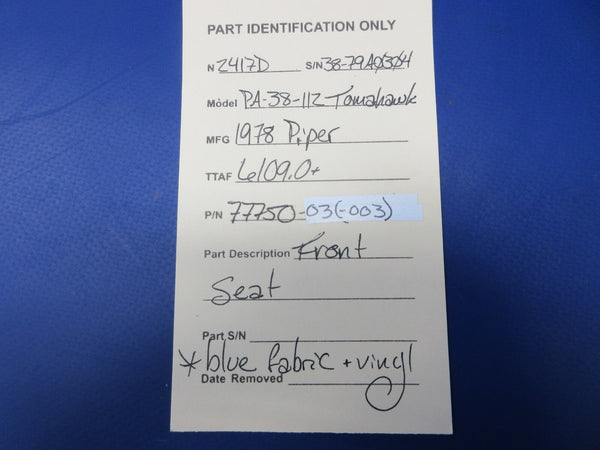 PART IDENTIFICATION ONLY
N 2417D S/N 38-79A0304
Model PA-38-112 Tomahawk
MFG 1978 Piper
TTAF 6109.0+
P/N 77750-03(-003)
Part Description Front
Seat
Part S/N
* blue fabric + vinyl
Date Removed